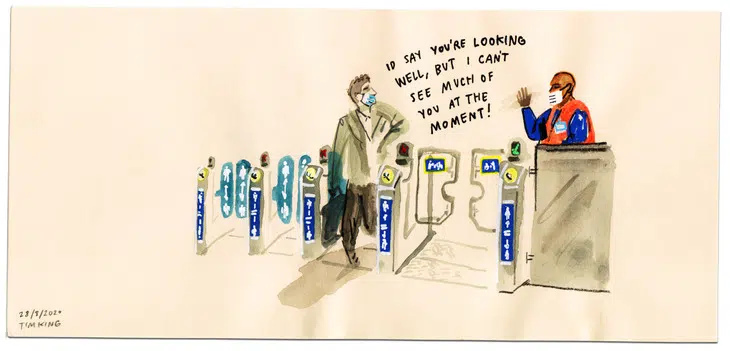 ID SAY YOU'RE LOOKING
WELL, BUT I CAN'T
SEE MUCH OF
YOU AT THE
MOMENT!
28/8/2020
TIM KING